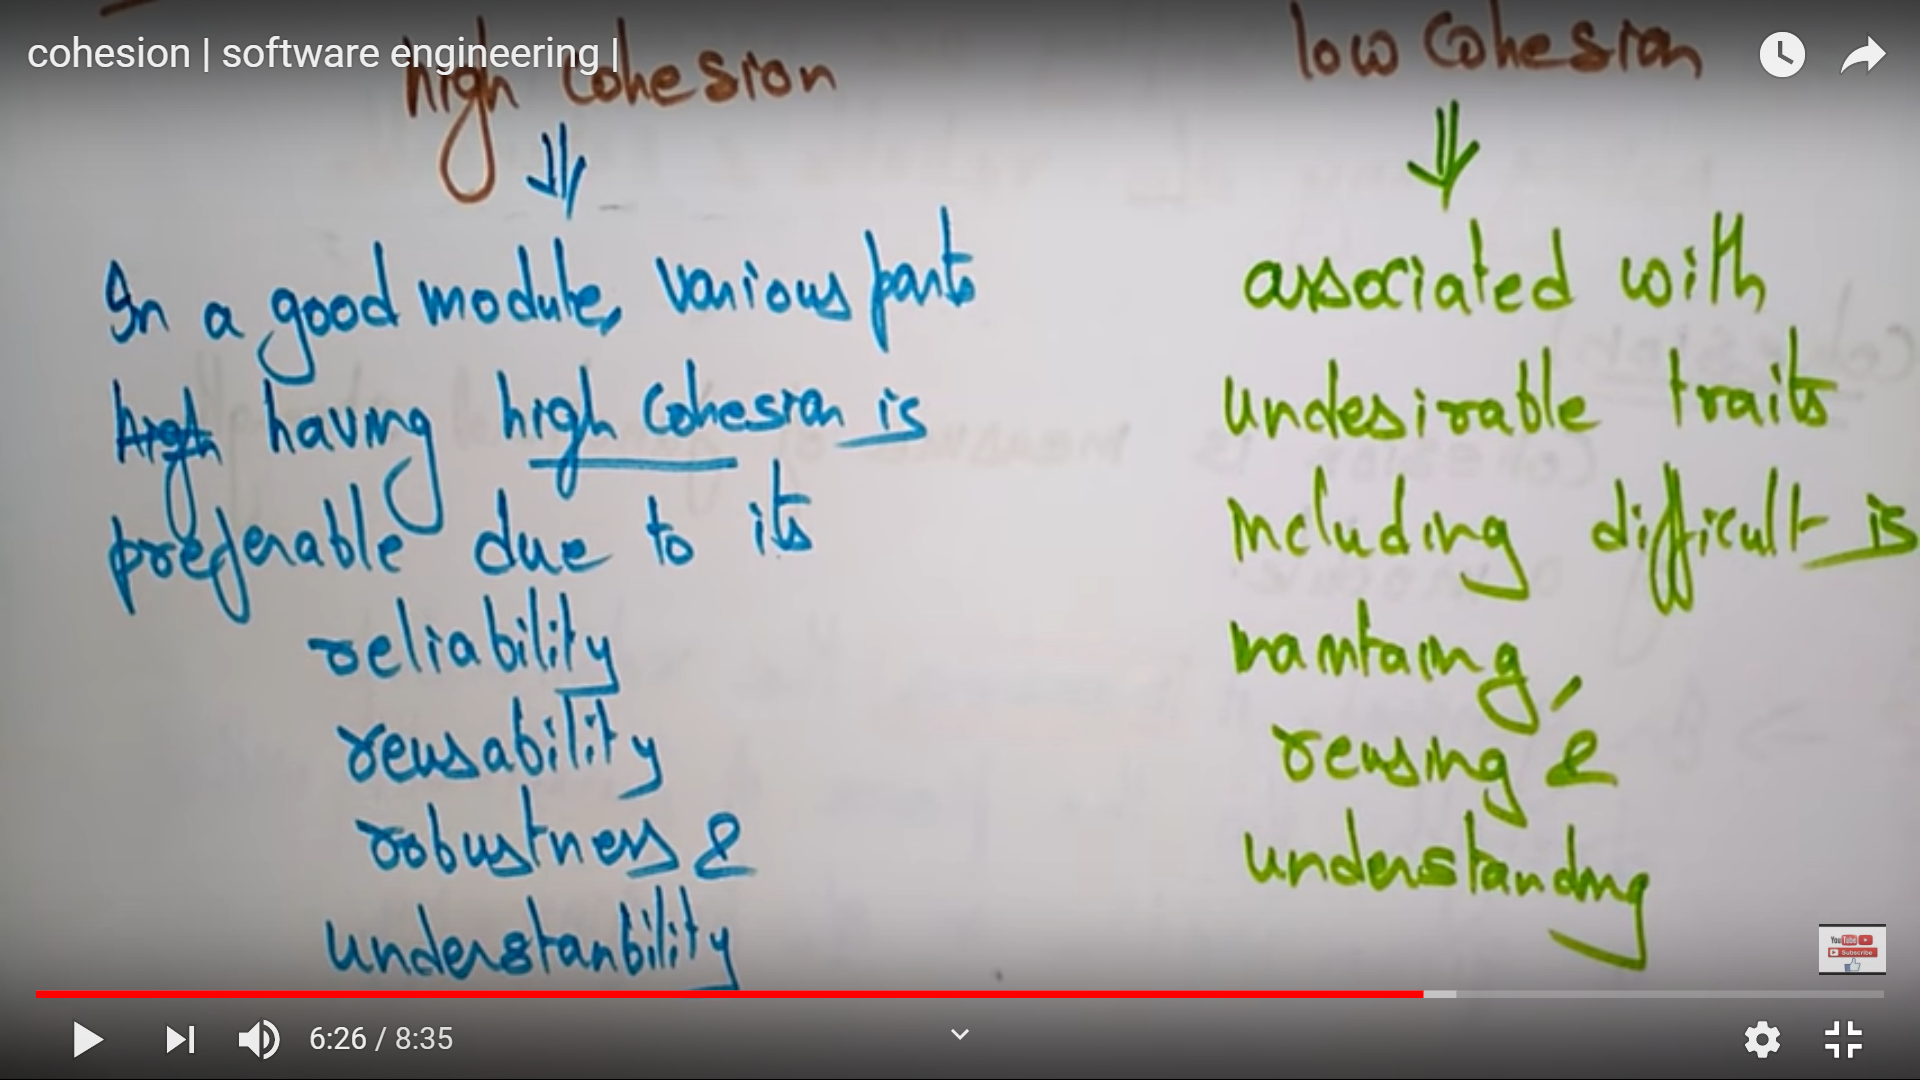 cohesion | software engineering |
high cohesion
In a good module, various parts
high having high cohesion is
preferable due to its
reliability
reusability
robustness &
understanbility
low cohesion
associated with
undesirable traits
including difficult is
mantaing,
reusing &
understanding
YouTube
Subscribe
6:26 / 8:35